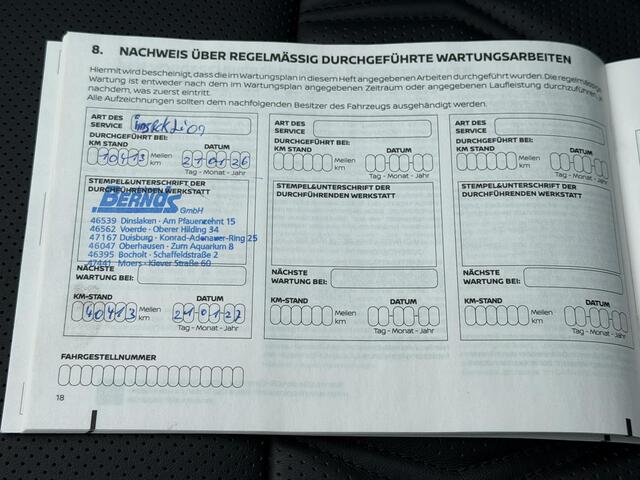 8. NACHWEIS ÜBER REGELMÄSSIG DURCHGEFÜHRTE WARTUNGSARBEITEN
Hiermit wird bescheinigt, dass die im Wartungsplan in diesem Heft angegebenen Arbeiten durchgeführt wurden. Die regelmässige
Wartung ist entweder nach dem im Wartungsplan angegebenen Zeitraum oder angegebenen Laufleistung durchzuführen, je
nachdem, was zuerst eintritt.
Alle Aufzeichnungen sollten dem nachfolgenden Besitzer des Fahrzeugs ausgehändigt werden.
ART DES SERVICE
Inspektion
DURCHGEFÜHRT BEI:
KM STAND DATUM
10413 Meilen km 21 01 26
Tag - Monat - Jahr
STEMPEL&UNTERSCHRIFT DER
DURCHFÜHRENDEN WERKSTATT
BERNDS GmbH
46539 Dinslaken · Am Pfauenzehnt 15
46562 Voerde · Oberer Hilding 34
47167 Duisburg · Konrad-Adenauer-Ring 25
46047 Oberhausen · Zum Aquarium 8
46395 Bocholt · Schaffeldstraße 2
47441 Moers · Klever Straße 60
NÄCHSTE
WARTUNG BEI:
KM-STAND DATUM
40413 Meilen km 21 01 27
Tag - Monat - Jahr
FAHRGESTELLNUMMER
18
ART DES
SERVICE
DURCHGEFÜHRT BEI:
KM STAND DATUM
Meilen
km
Tag - Monat - Jahr
STEMPEL&UNTERSCHRIFT DER
DURCHFÜHRENDEN WERKSTATT
NÄCHSTE
WARTUNG BEI:
KM-STAND DATUM
Meilen
km
Tag - Monat - Jahr
ART DES
SERVICE
DURCHGEFÜHRT BEI:
KM STAND DATUM
Meilen
km
Tag - Monat - Jahr
STEMPEL&UNTERSCHRIFT DER
DURCHFÜHRENDEN WERKSTATT
NÄCHSTE
WARTUNG BEI:
KM-STAND DATUM
Meilen
km
Tag - Monat - Jahr